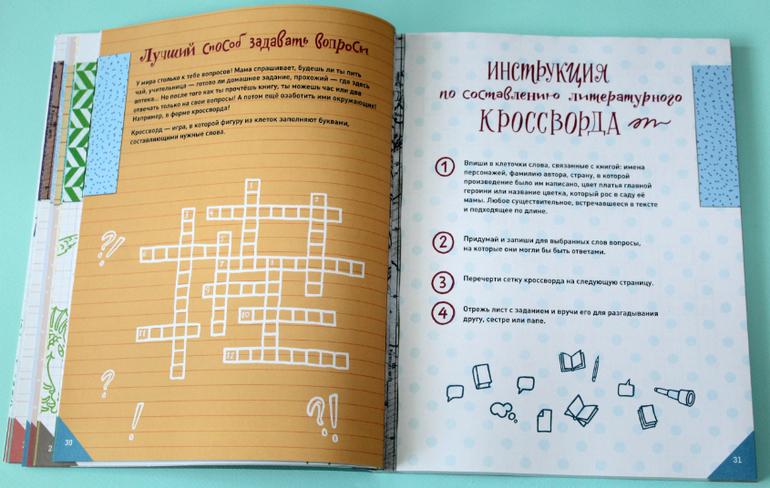 Лучший способ задавать вопросы
У мира столько к тебе вопросов! Мама спрашивает, будешь ли ты пить
чай, учительница — готово ли домашнее задание, прохожий — где здесь
аптека. Но после того как ты прочтёшь книгу, ты можешь час или два
отвечать только на свои вопросы! А потом ещё озаботить ими окружающих!
Например, в форме кроссворда!
Кроссворд — игра, в которой фигуру из клеток заполняют буквами,
составляющими нужные слова.
10
11
12
30
Инструкция
по составлению литературного
кроссворда
1 Впиши в клеточки слова, связанные с книгой: имена
персонажей, фамилию автора, страну, в которой
произведение было им написано, цвет платья главной
героини или название цветка, который рос в саду её
мамы. Любое существительное, встречавшееся в тексте
и подходящее по длине.
2 Придумай и запиши для выбранных слов вопросы,
на которые они могли бы быть ответами.
3 Перечерти сетку кроссворда на следующую страницу.
4 Отрежь лист с заданием и вручи его для разгадывания
другу, сестре или папе.
31